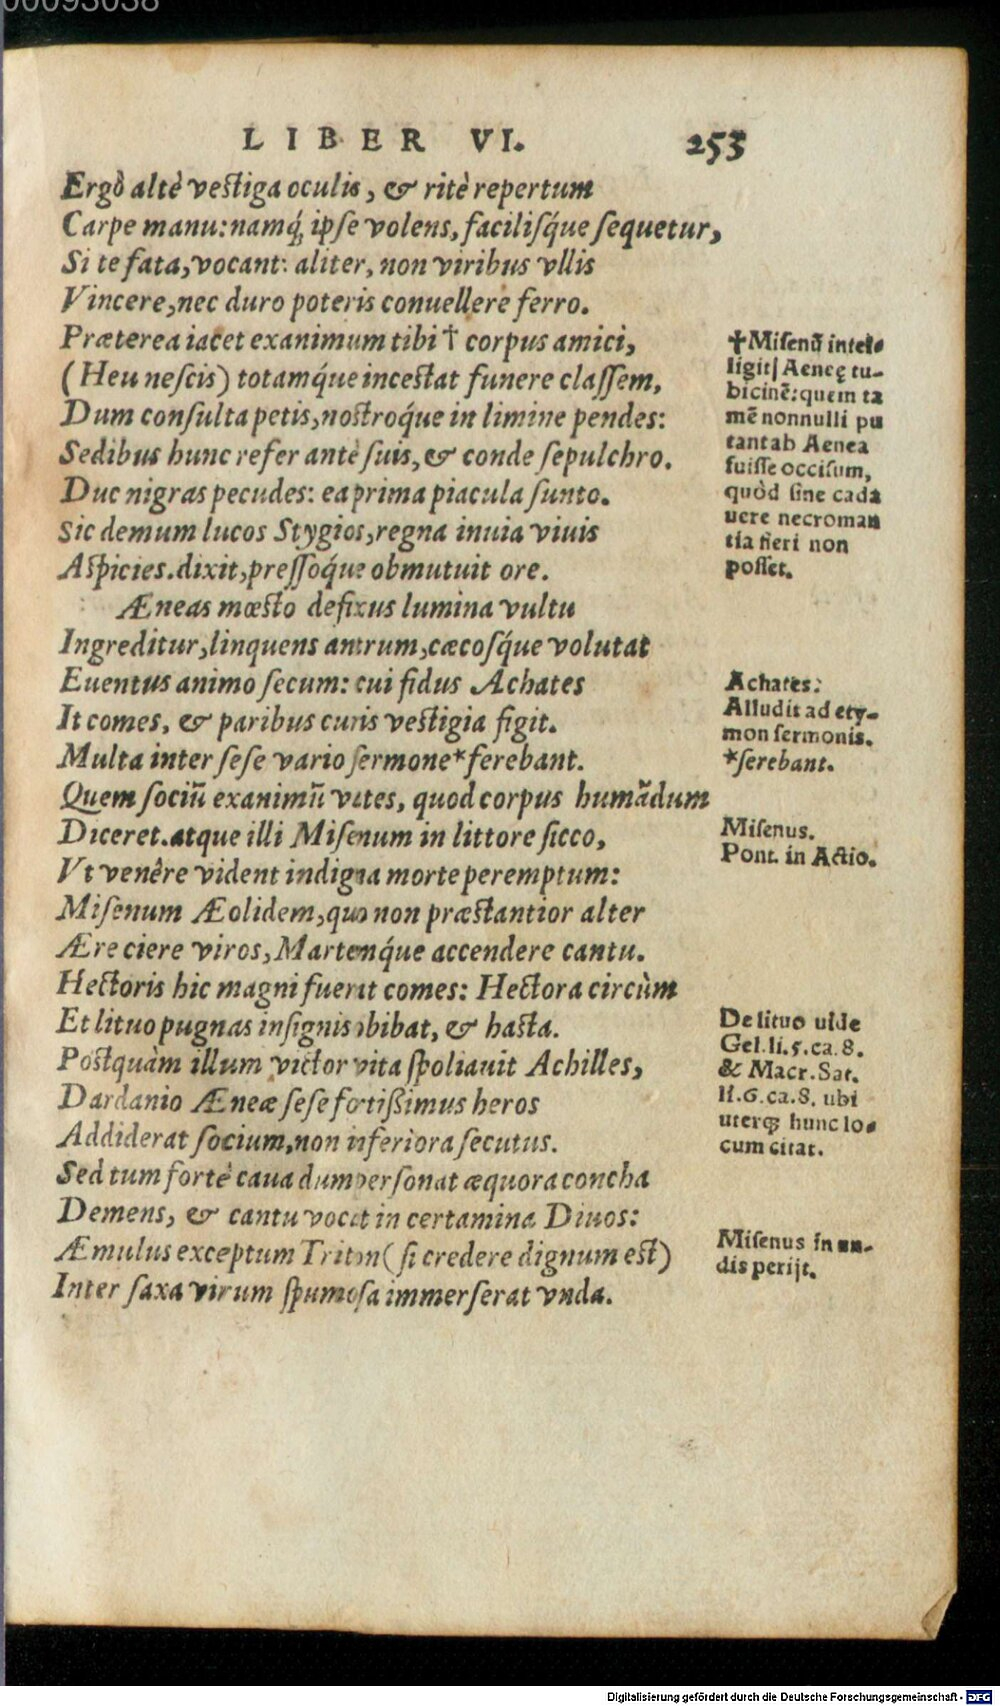 00093038
LIBER VI. 253
Ergò altè vestiga oculis, & ritè repertum
Carpe manu: namq́; ipse volens, facilisq́ue sequetur,
Si te fata, vocant: aliter, non viribus vllis
Vincere, nec duro poteris conuellere ferro.
Præterea iacet exanimum tibi † corpus amici,
(Heu nescis) totamq́ue incestat funere classem,
Dum consulta petis, nostroq́ue in limine pendes:
Sedibus hunc refer antè suis, & conde sepulchro.
Duc nigras pecudes: ea prima piacula sunto.
Sic demum lucos Stygios, regna inuia viuis
Aspicies. dixit, pressoq́ue obmutuit ore.
Æneas mœsto defixus lumina vultu
Ingreditur, linquens antrum, cæcosq́ue volutat
Euentus animo secum: cui fidus Achates
It comes, & paribus curis vestigia figit.
Multa inter sese vario sermone * ferebant.
Quem sociũ exanimũ vates, quod corpus humãdum
Diceret. atque illi Misenum in littore sicco,
Vt venêre vident indigna morte peremptum:
Misenum Æolidem, quo non præstantior alter
Ære ciere viros, Martemq́ue accendere cantu.
Hectoris hic magni fuerat comes: Hectora circùm
Et lituo pugnas insignis obibat, & hasta.
Postquàm illum victor vita spoliauit Achilles,
Dardanio Æneæ sese fortißimus heros
Addiderat socium, non inferiora secutus.
Sed tum fortè caua dum personat æquora concha
Demens, & cantu vocat in certamina Diuos:
Æmulus exceptum Triton (si credere dignum est)
Inter saxa virum spumosa immerserat vnda.
†Misenũ intel-
ligit, Aeneę tu-
bicinẽ: quem ta
mẽ nonnulli pu
tant ab Aenea
fuisse occisum,
quòd sine cada
uere necroman
tia fieri non
posset.
Achates:
Alludit ad ety-
mon sermonis.
*serebant.
Misenus.
Pont. in Actio.
De lituo uide
Gel. li. 5. ca. 8.
& Macr. Sat.
li. 6. ca. 8. ubi
uterq; hunc lo-
cum citat.
Misenus in un-
dis perijt.
Digitalisierung gefördert durch die Deutsche Forschungsgemeinschaft - DFG